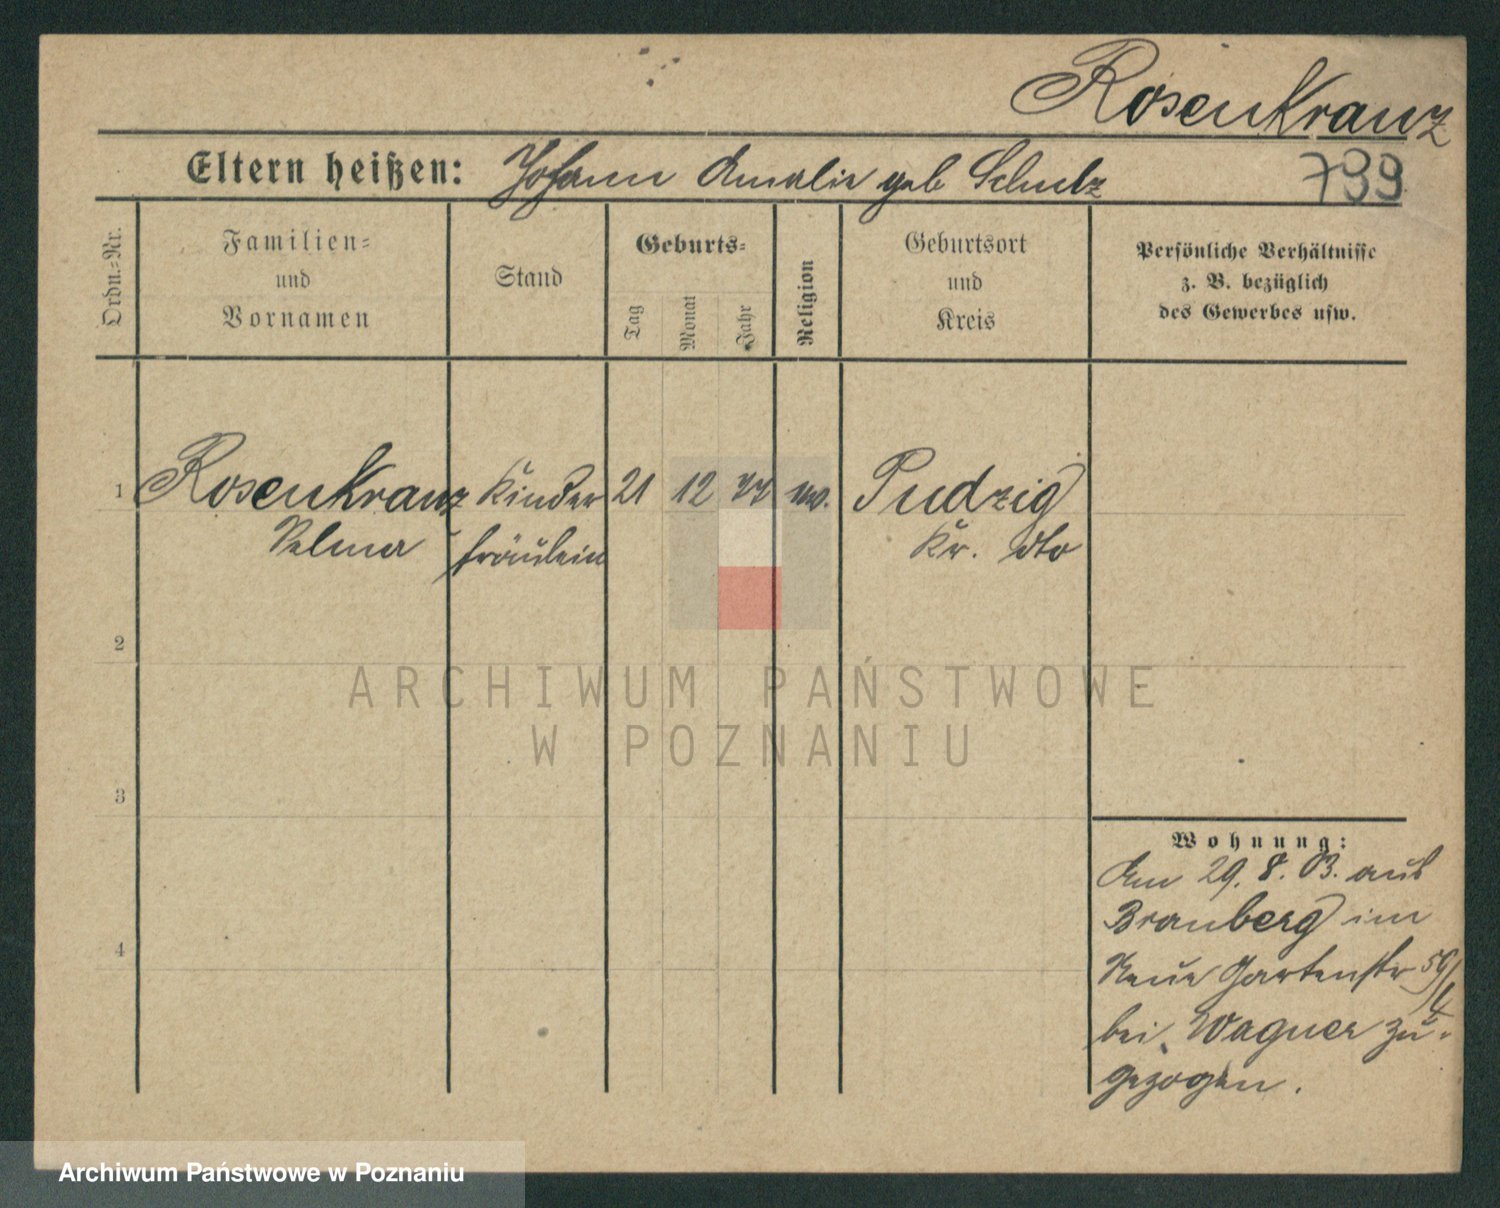 Rosenkranz
Eltern heißen: Johann Amalie geb Schulz 799
Ordn.=Nr.
Familien=
und
Vornamen
Stand
Geburts=
Tag
Monat
Jahr
Religion
Geburtsort
und
Kreis
Persönliche Verhältnisse
z. B. bezüglich
des Gewerbes usw.
1 Rosenkranz Kinder 21 12 77 Pudzig
fräulein Kr. dto
2
ARCHIWUM PAŃSTWOWE
W POZNANIU
3
Wohnung:
Am 29. 8. 03. aus
im
4
Neue Gartenstr 59/4
bei Wagner zu=
gezogen.
Archiwum Państwowe w Poznaniu